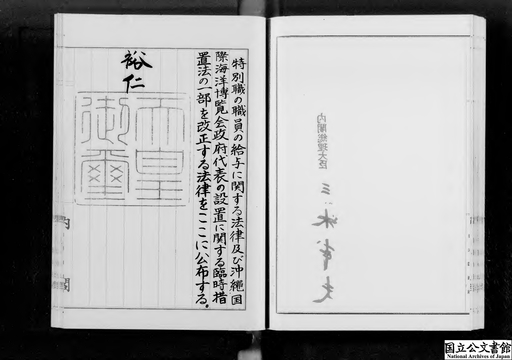 内閣総理大臣
三木武夫
特別職の職員の給与に関する法律及び沖縄国
際海洋博覧会政府代表の設置に関する臨時措
置法の一部を改正する法律をここに公布する。
裕仁
天皇
御璽
内閣
国立公文書館
National Archives of Japan